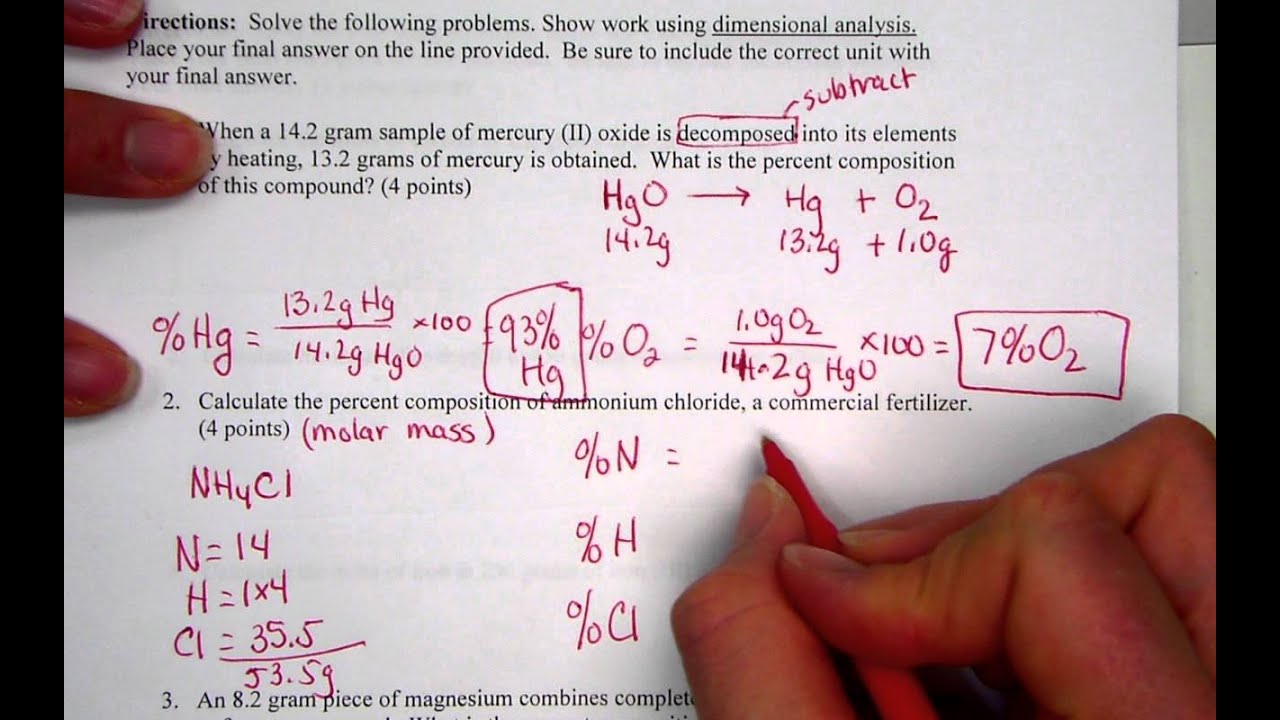 Directions: Solve the following problems. Show work using dimensional analysis.
Place your final answer on the line provided. Be sure to include the correct unit with
your final answer.
subtract
When a 14.2 gram sample of mercury (II) oxide is decomposed into its elements
by heating, 13.2 grams of mercury is obtained. What is the percent composition
of this compound? (4 points)
HgO → Hg + O2
14.2g 13.2g + 1.0g
%Hg = 13.2g Hg / 14.2g HgO ×100 = 93% Hg
%O2 = 1.0g O2 / 14.2g HgO ×100 = 7% O2
2. Calculate the percent composition of ammonium chloride, a commercial fertilizer.
(4 points) (molar mass)
NH4Cl
N = 14
H = 1×4
Cl = 35.5
53.5g
%N =
%H
%Cl
3. An 8.2 gram piece of magnesium combines